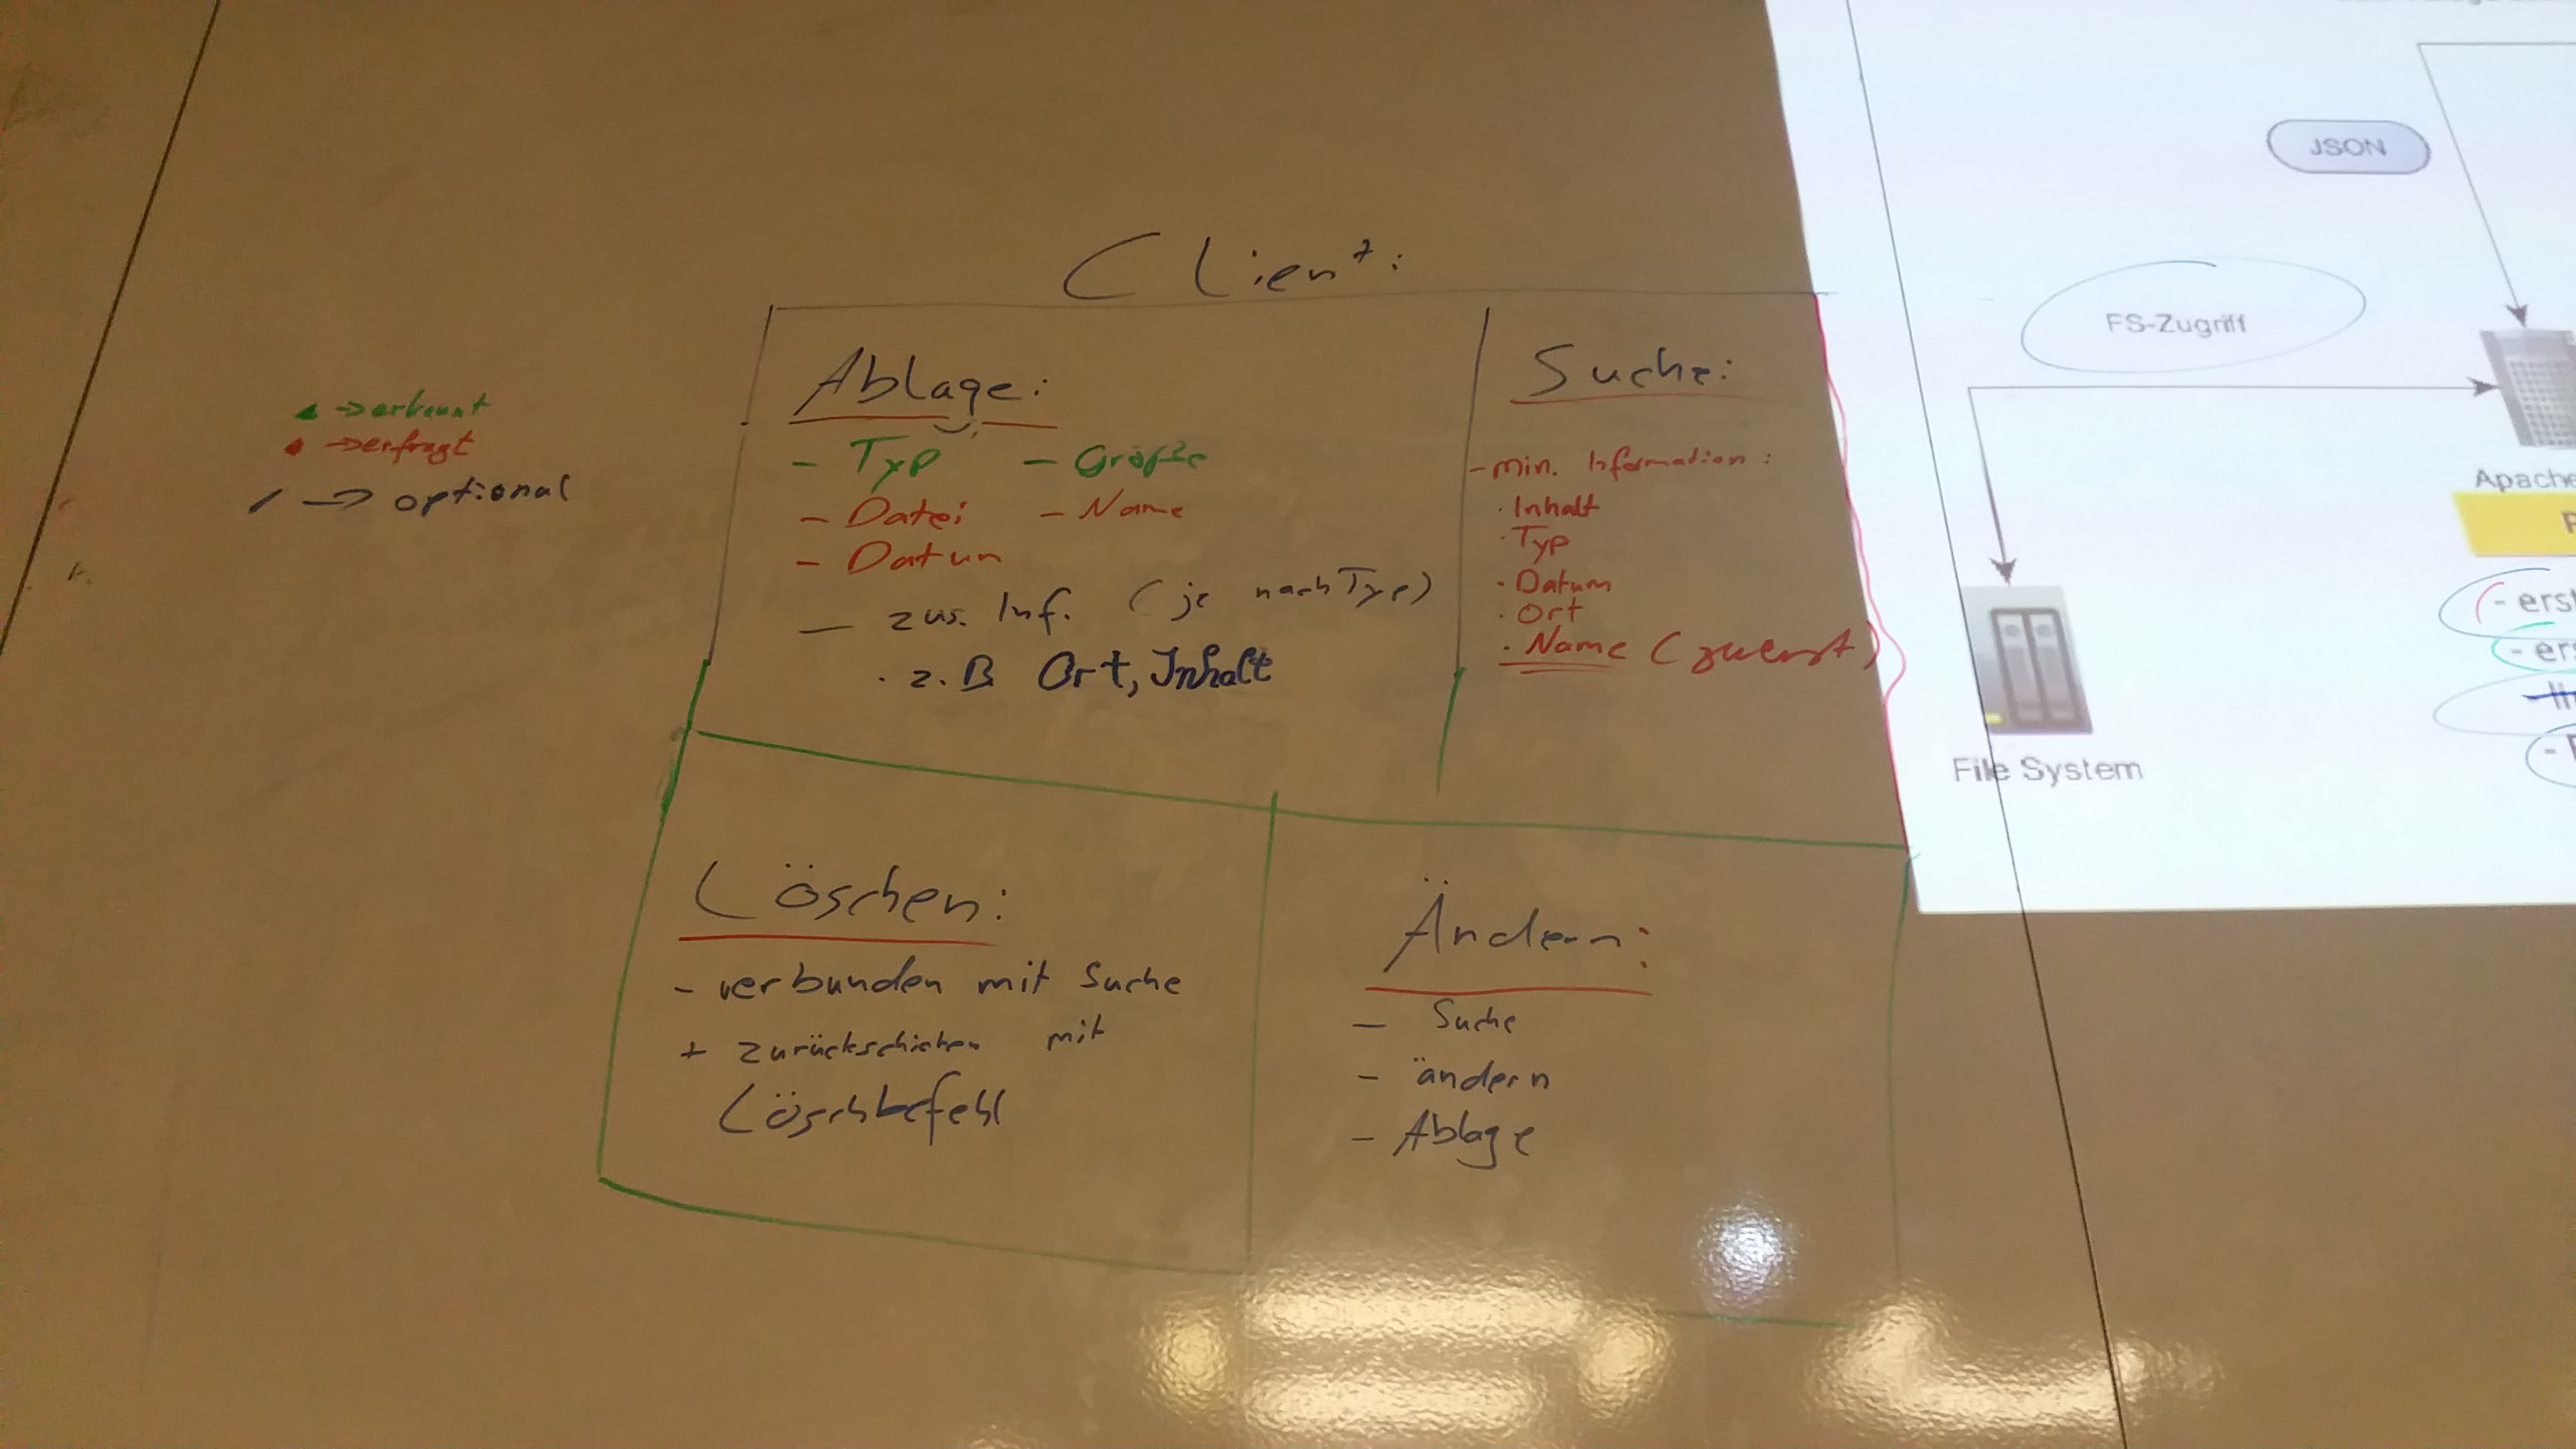 Client:
• → erkannt
• → erfragt
/ → optional
Ablage:
- Typ - Größe
- Datei - Name
- Datum
- zus. Inf. (je nach Typ)
· z.B Ort, Inhalt
Suche:
- min. Information:
· Inhalt
· Typ
· Datum
· Ort
· Name (zuerst)
Löschen:
- verbunden mit Suche
+ zurückschicken mit
Löschbefehl
Ändern:
- Suche
- ändern
- Ablage
JSON
FS-Zugriff
Apache
File System